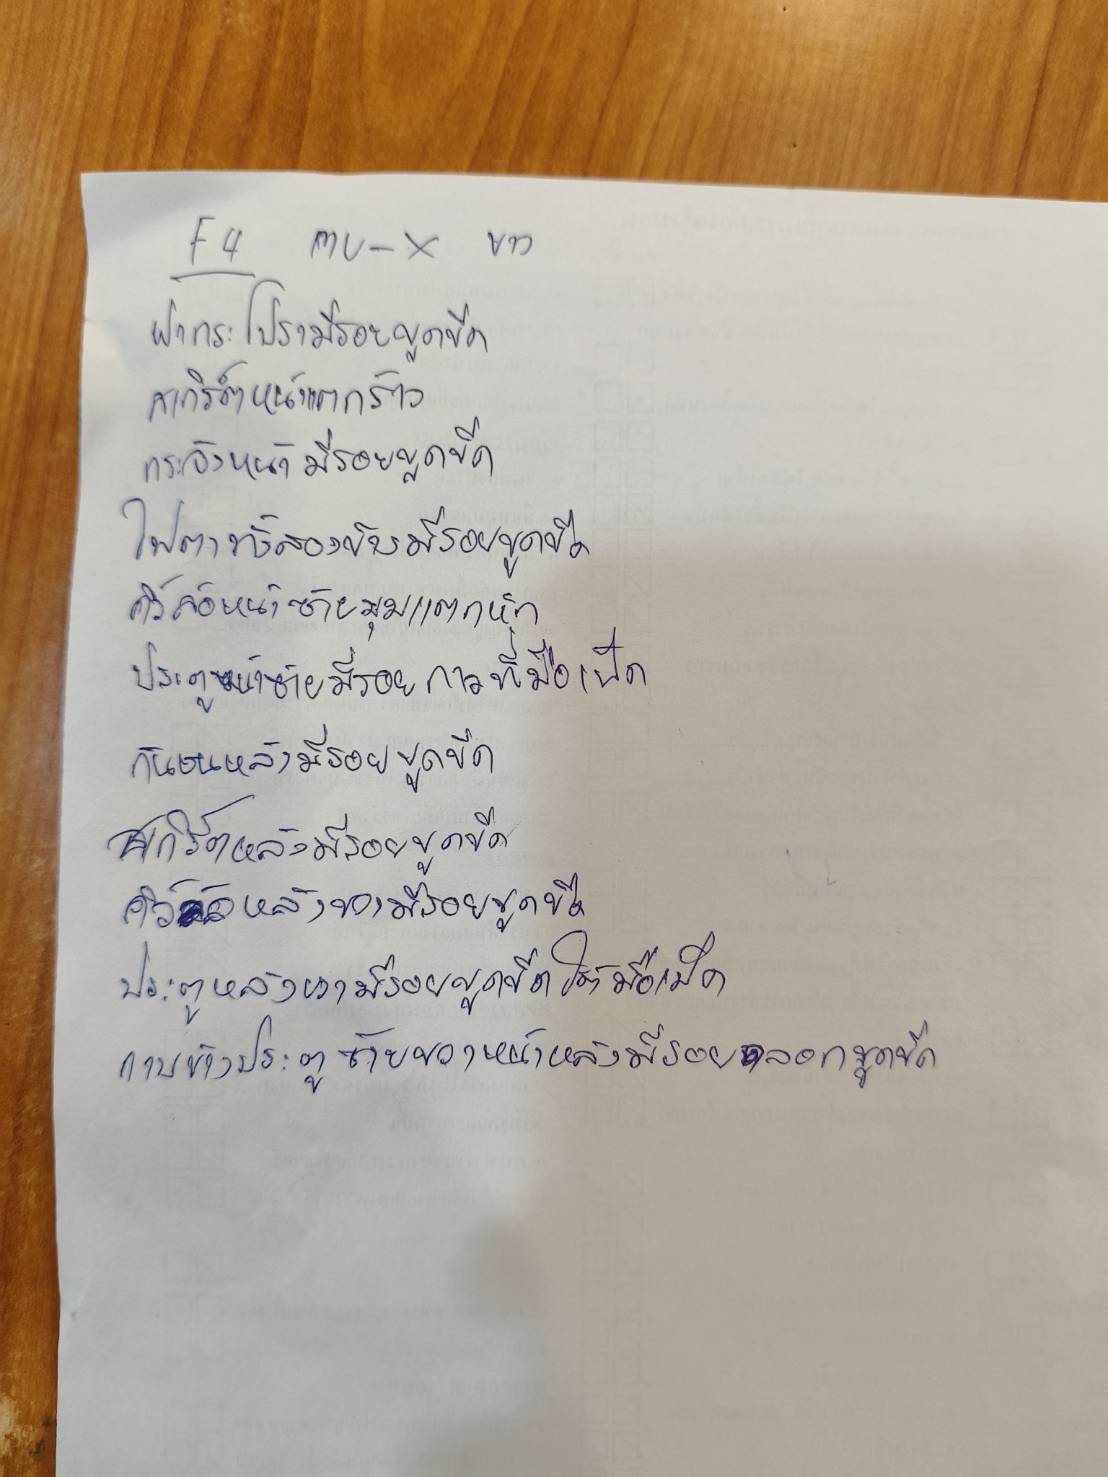 F4 mu-x ขาว
ฝากระโปรงมีรอยขูดขีด
สเกิร์ตหน้าแตกร้าว
กระจังหน้ามีรอยขูดขีด
ไฟตาทั้งสองข้างมีรอยขูดขีด
คิ้วล้อหน้าซ้ายมุมแตกหัก
ประตูหน้าซ้ายมีรอยกาวที่มือเปิด
กันชนหลังมีรอยขูดขีด
สเกิร์ตหลังมีรอยขูดขีด
คิ้วล้อหลังขวามีรอยขูดขีด
ประตูหลังขวามีรอยขูดขีดใต้มือเปิด
กาบข้างประตูซ้ายขวาหน้าหลังมีรอยถลอกขูดขีด